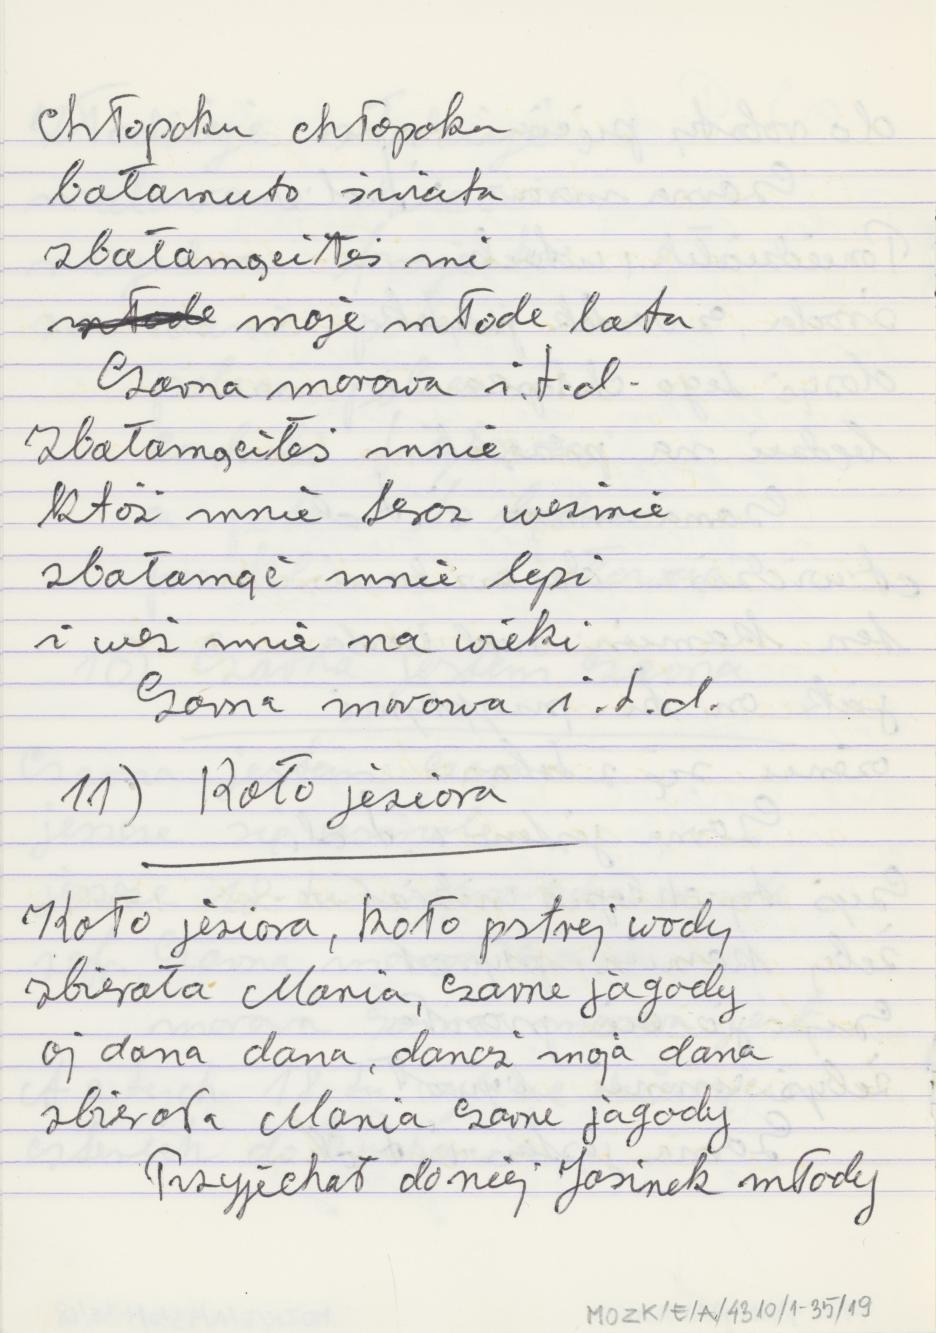 Chłopoku chłopoku
bałamuto świata
zbałamąciłeś mi
młode moje młode lata
Czarna morowa i.t.d.
Zbałamąciłeś mnie
któż mnie teroz weźmie
zbałamąć mnie lepi
i weź mnie na wieki
Czarna morowa i.t.d.
11) Koło jeziora
Koło jeziora, koło pstrej wody
zbierała Mania, czarne jagody
oj dana dana, danaż moja dana
zbierała Mania czarne jagody
Przyjechał do niej Jasinek młody
MOZK/E/A/4310/1-35/19